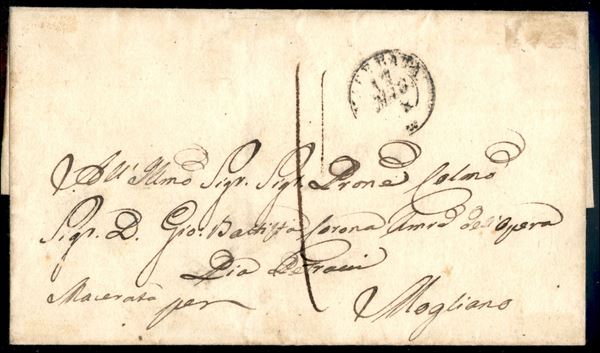 MACERATA
17
MAG
All' Illmo Sigr. Sigr. Prone Colmo
Sigr. D. Gio. Battista Corona Amre dell'Opera
Pia Petracci
Macerata per Mogliano